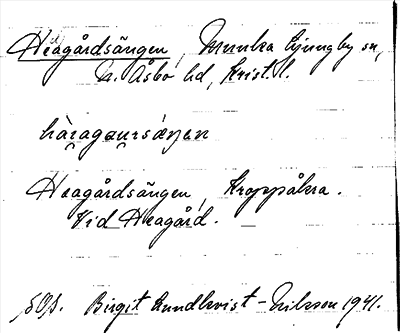 Heagårdsängen, Munka Ljungby sn,
N. Åsbo hd, Krist. l.
hàragaursǽŋen
Heagårdsängen, Kroppåkra.
Vid Heagård.
Birgit Lundkvist-Nilsson 1941.